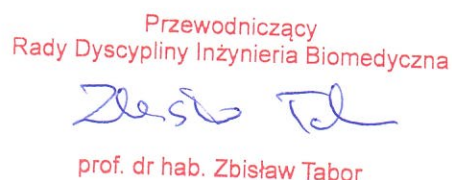 Przewodniczący
Rady Dyscypliny Inżynieria Biomedyczna
prof. dr hab. Zbisław Tabor